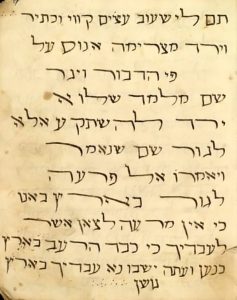 וירד מצרימה אנוס על
פי הדבור ויגר
שם מלמד שלא
ירד להשתקע אלא
לגור שם שנאמר
ויאמרו אל פרעה
לגור בארץ באנו
כי אין מרעה לצאן אשר
לעבדיך כי כבד הרעב בארץ
כנען ועתה ישבו נא עבדיך בארץ
גושן